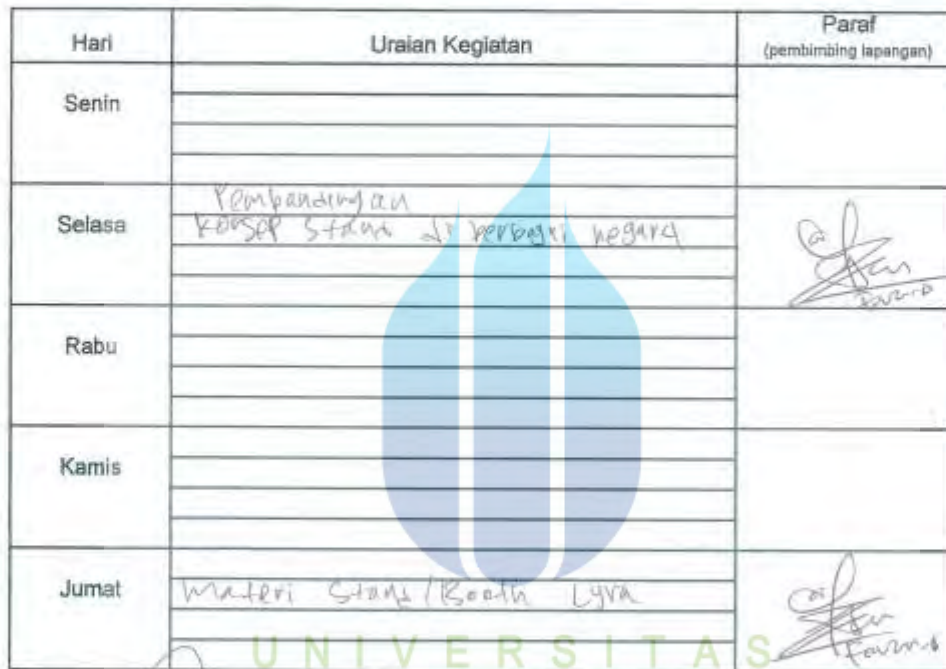 Hari Uraian Kegiatan Paraf
(pembimbing lapangan)
Senin
Pembandingan
Selasa konsep stand di berbagai negara
Rabu
Kamis
Jumat Materi Stand/Booth Lyra
UNIVERSITAS